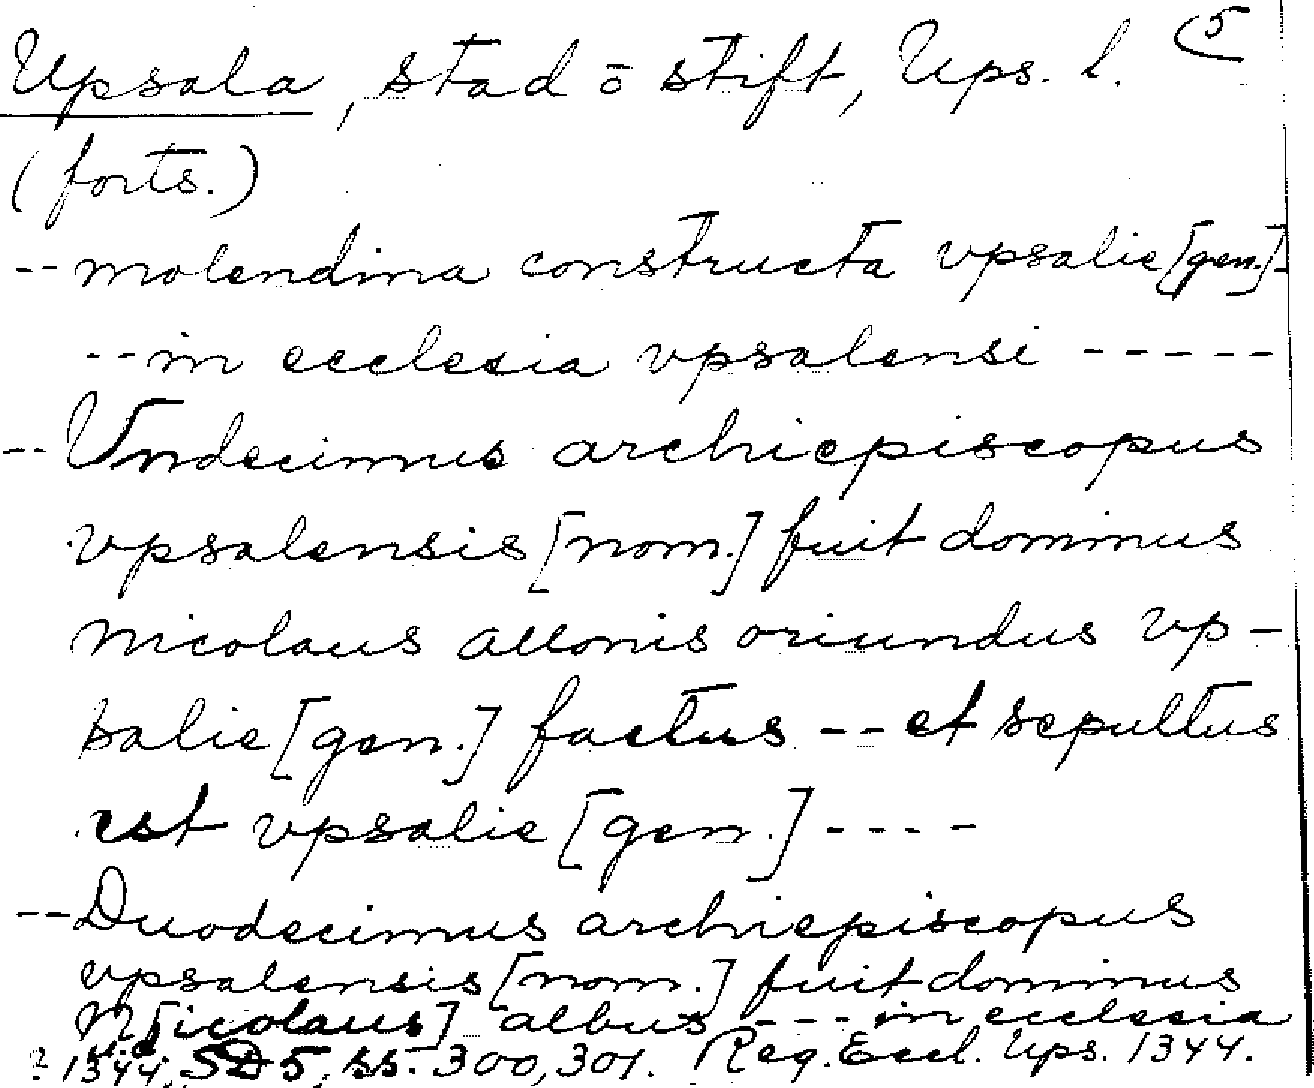 Upsala, stad o stift, Ups. l. 5
(forts.)
-- molendina constructa vpsalie [gen.] -
-- in ecclesia vpsalensi -----
-- Vndecimus archiepiscopus
vpsalensis [nom.] fuit dominus
nicolaus allonis oriundus vp-
salie [gen.] factus -- et sepultus
est vpsalie [gen.] ----
-- Duodecimus archiepiscopus
vpsalensis [nom.] fuit dominus
N[icolaus] albus --- in ecclesia
1344. SD 5, ss. 300, 301. Reg. Eccl. Ups. 1344.